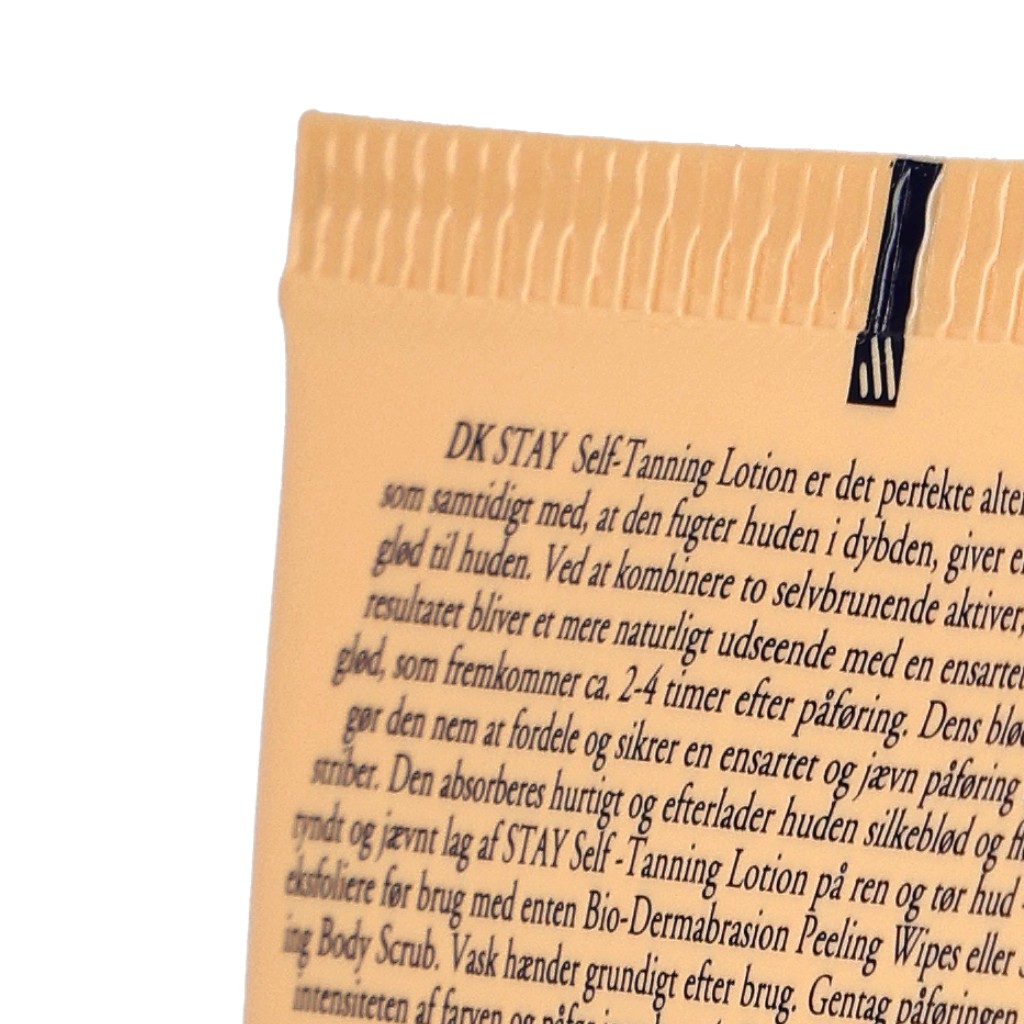 DK STAY Self-Tanning Lotion er det perfekte
som samtidigt med, at den fugter huden i dybden, giver
glød til huden. Ved at kombinere to selvbrunende aktiver,
resultatet bliver et mere naturligt udseende med en ensartet
glød, som fremkommer ca. 2-4 timer efter påføring. Dens
gør den nem at fordele og sikrer en ensartet og jævn påføring
striber. Den absorberes hurtigt og efterlader huden silkeblød og
tyndt og jævnt lag af STAY Self -Tanning Lotion på ren og tør hud
eksfoliere før brug med enten Bio-Dermabrasion Peeling Wipes eller
ing Body Scrub. Vask hænder grundigt efter brug. Gentag påføringen
intensiteten af farven og